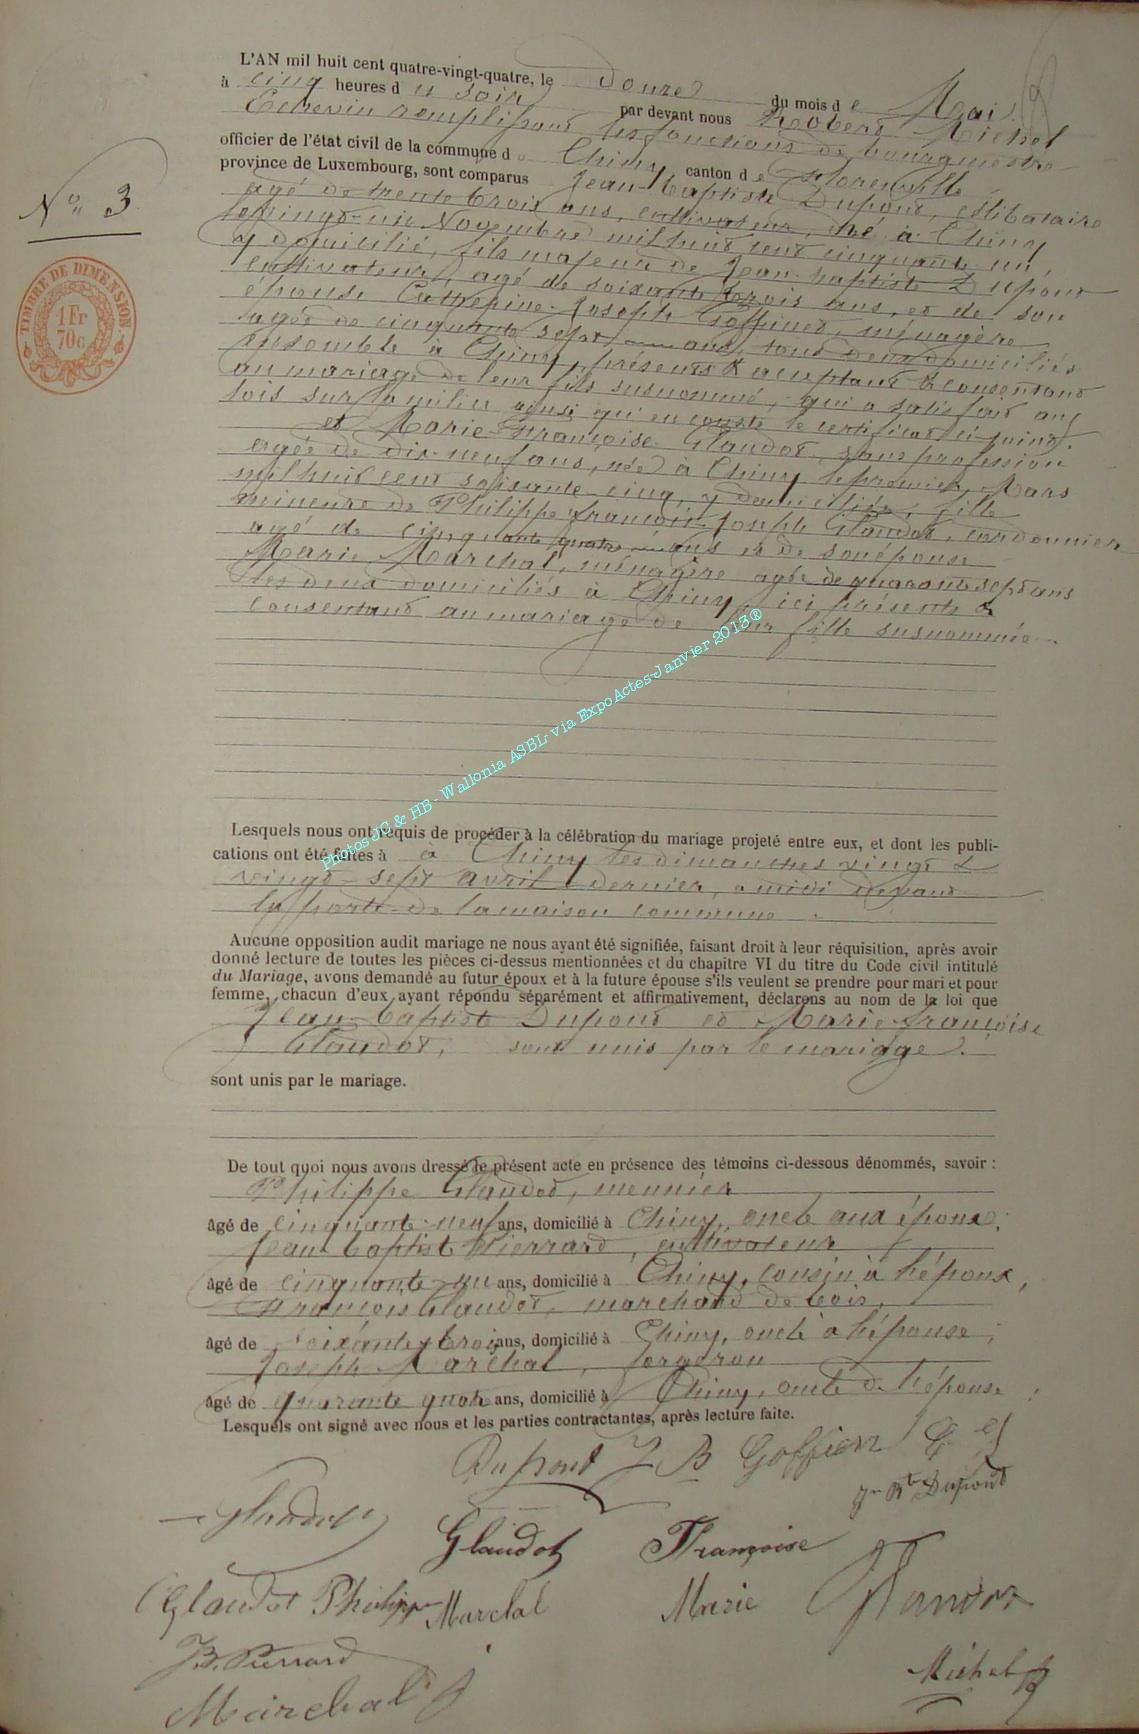 L'AN mil huit cent quatre-vingt-quatre, le douze du mois de Mai
à cinq heures du soir par devant nous Robert Michel
Echevin remplissant les fonctions de bourgmestre
officier de l'état civil de la commune de Chiny canton de Florenville
province de Luxembourg, sont comparus Jean-baptiste Dupont, célibataire
agé de trente trois ans, cultivateur, né à Chiny
le vingt-un Novembre mil huit cent cinquante-un,
y domicilié, fils majeur de Jean-baptiste Dupont
cultivateur, agé de soixante trois ans, et de son
épouse Catherine-Joseph Goffinet, ménagère
agée de cinquante sept ans, tous deux domiciliés
ensemble à Chiny, présents & acceptant & consentant
au mariage de leur fils susnommé, qui a satisfait aux
lois sur la milice ainsi qu'en conste le certificat ci-joint.
et Marie Françoise Glaudot, sans profession
agée de dix-neuf ans, née à Chiny le premier Mars
mil huit cent soixante-cinq, y domiciliée, fille
mineure de Philippe françois Joseph Glaudot, cordonnier
agé de cinquante quatre ans et de son épouse
Marie Marchal, ménagère agée de quarante sept ans
les deux domiciliés à Chiny, ici présents &
consentant au mariage de leur fille susnommée.
Lesquels nous ont requis de procéder à la célébration du mariage projeté entre eux, et dont les publi-
cations ont été faites à à Chiny les dimanches vingt &
vingt-sept avril dernier, a midi devant
la porte de la maison commune.
Aucune opposition audit mariage ne nous ayant été signifiée, faisant droit à leur réquisition, après avoir
donné lecture de toutes les pièces ci-dessus mentionnées et du chapitre VI du titre du Code civil intitulé
du Mariage, avons demandé au futur époux et à la future épouse s'ils veulent se prendre pour mari et pour
femme, chacun d'eux ayant répondu séparément et affirmativement, déclarons au nom de la loi que
Jean-baptiste Dupont et Marie-françoise
Glaudot, sont unis par le mariage.
sont unis par le mariage.
De tout quoi nous avons dressé le présent acte en présence des témoins ci-dessous dénommés, savoir :
Philippe Glaudot, meunier
âgé de cinquante-neuf ans, domicilié à Chiny, oncle aux époux,
Jean baptiste Pierrard, cultivateur
âgé de cinquante-un ans, domicilié à Chiny, cousin à l'époux,
François Glaudot, marchand de bois,
âgé de soixante trois ans, domicilié à Chiny, oncle à l'épouse,
Joseph Maréchal, forgeron
âgé de quarante quatre ans, domicilié à Chiny, oncle de l'épouse,
Lesquels ont signé avec nous et les parties contractantes, après lecture faite.
Dupont J B Goffinet C J
Jn Bte Dupont
Glaudot
Glaudot Françoise
Glaudot Philippe Marchal Marie
JB. Pierrard
Michel R
Marechal J
No 3
TIMBRE DE DIMENSION
1 Fr
70 c.
Photos JC & HB - Wallonia ASBL via ExpoActes-Janvier 2013®